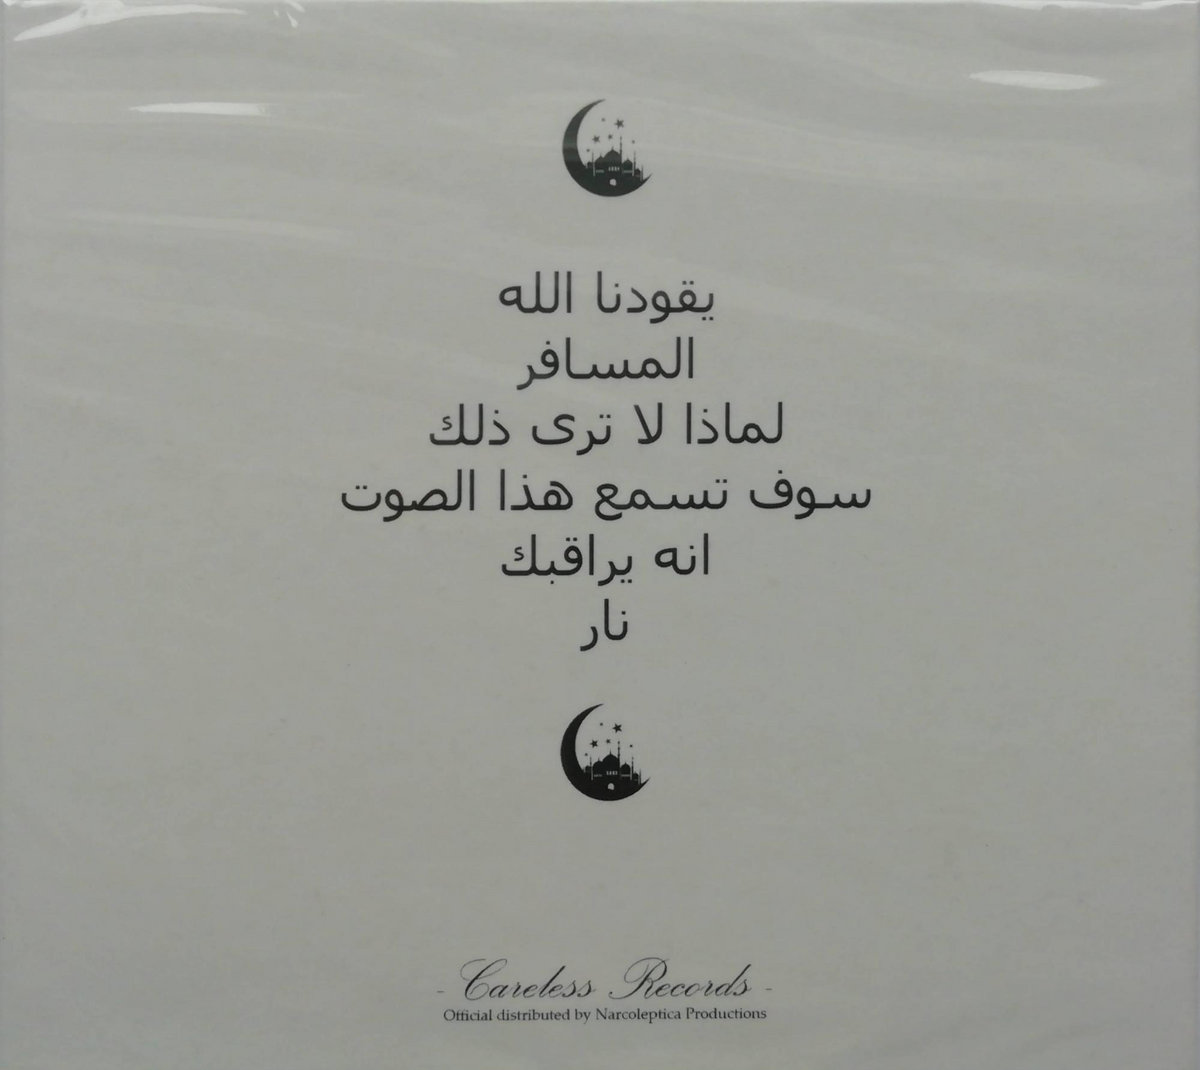 يقودنا الله
المسافر
لماذا لا ترى ذلك
سوف تسمع هذا الصوت
انه يراقبك
نار
- Careless Records -
Official distributed by Narcoleptica Productions